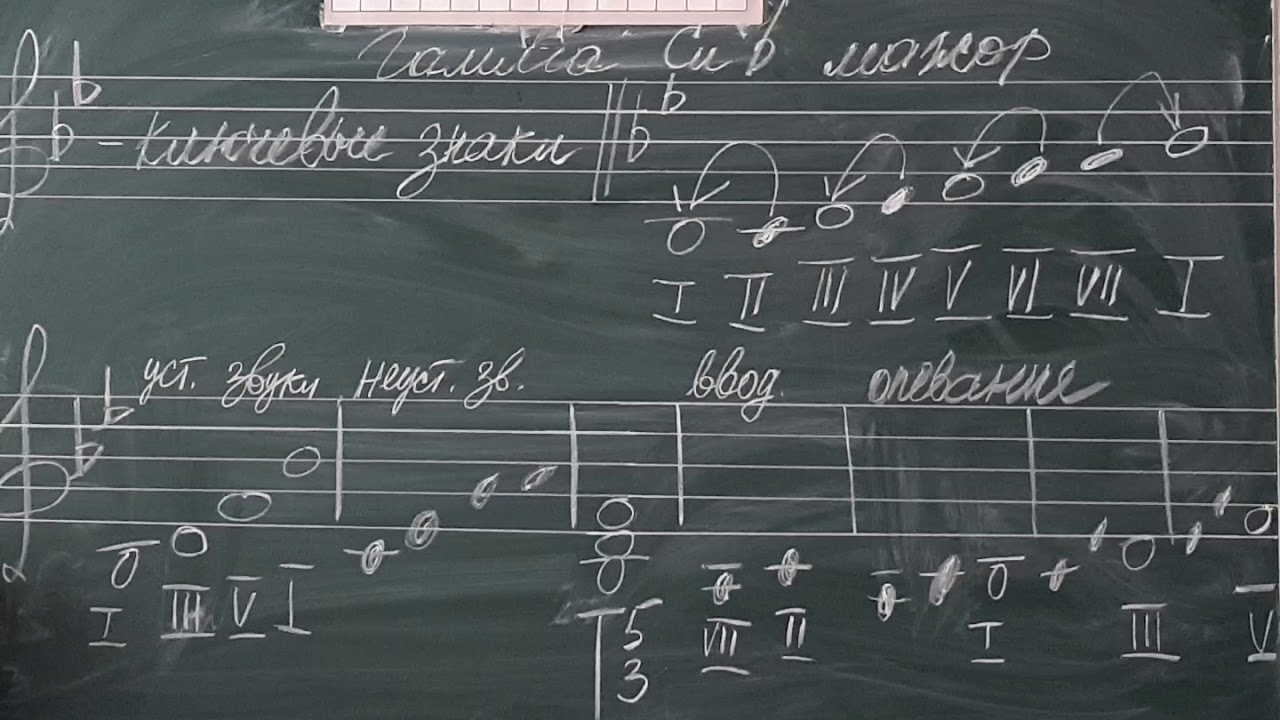 Гамма Си b мажор
b b - ключевые знаки b b
I II III IV V VI VII I
уст. звуки неуст. зв. ввод. опевание
b b
I III V I T 5 3 VII II I III V